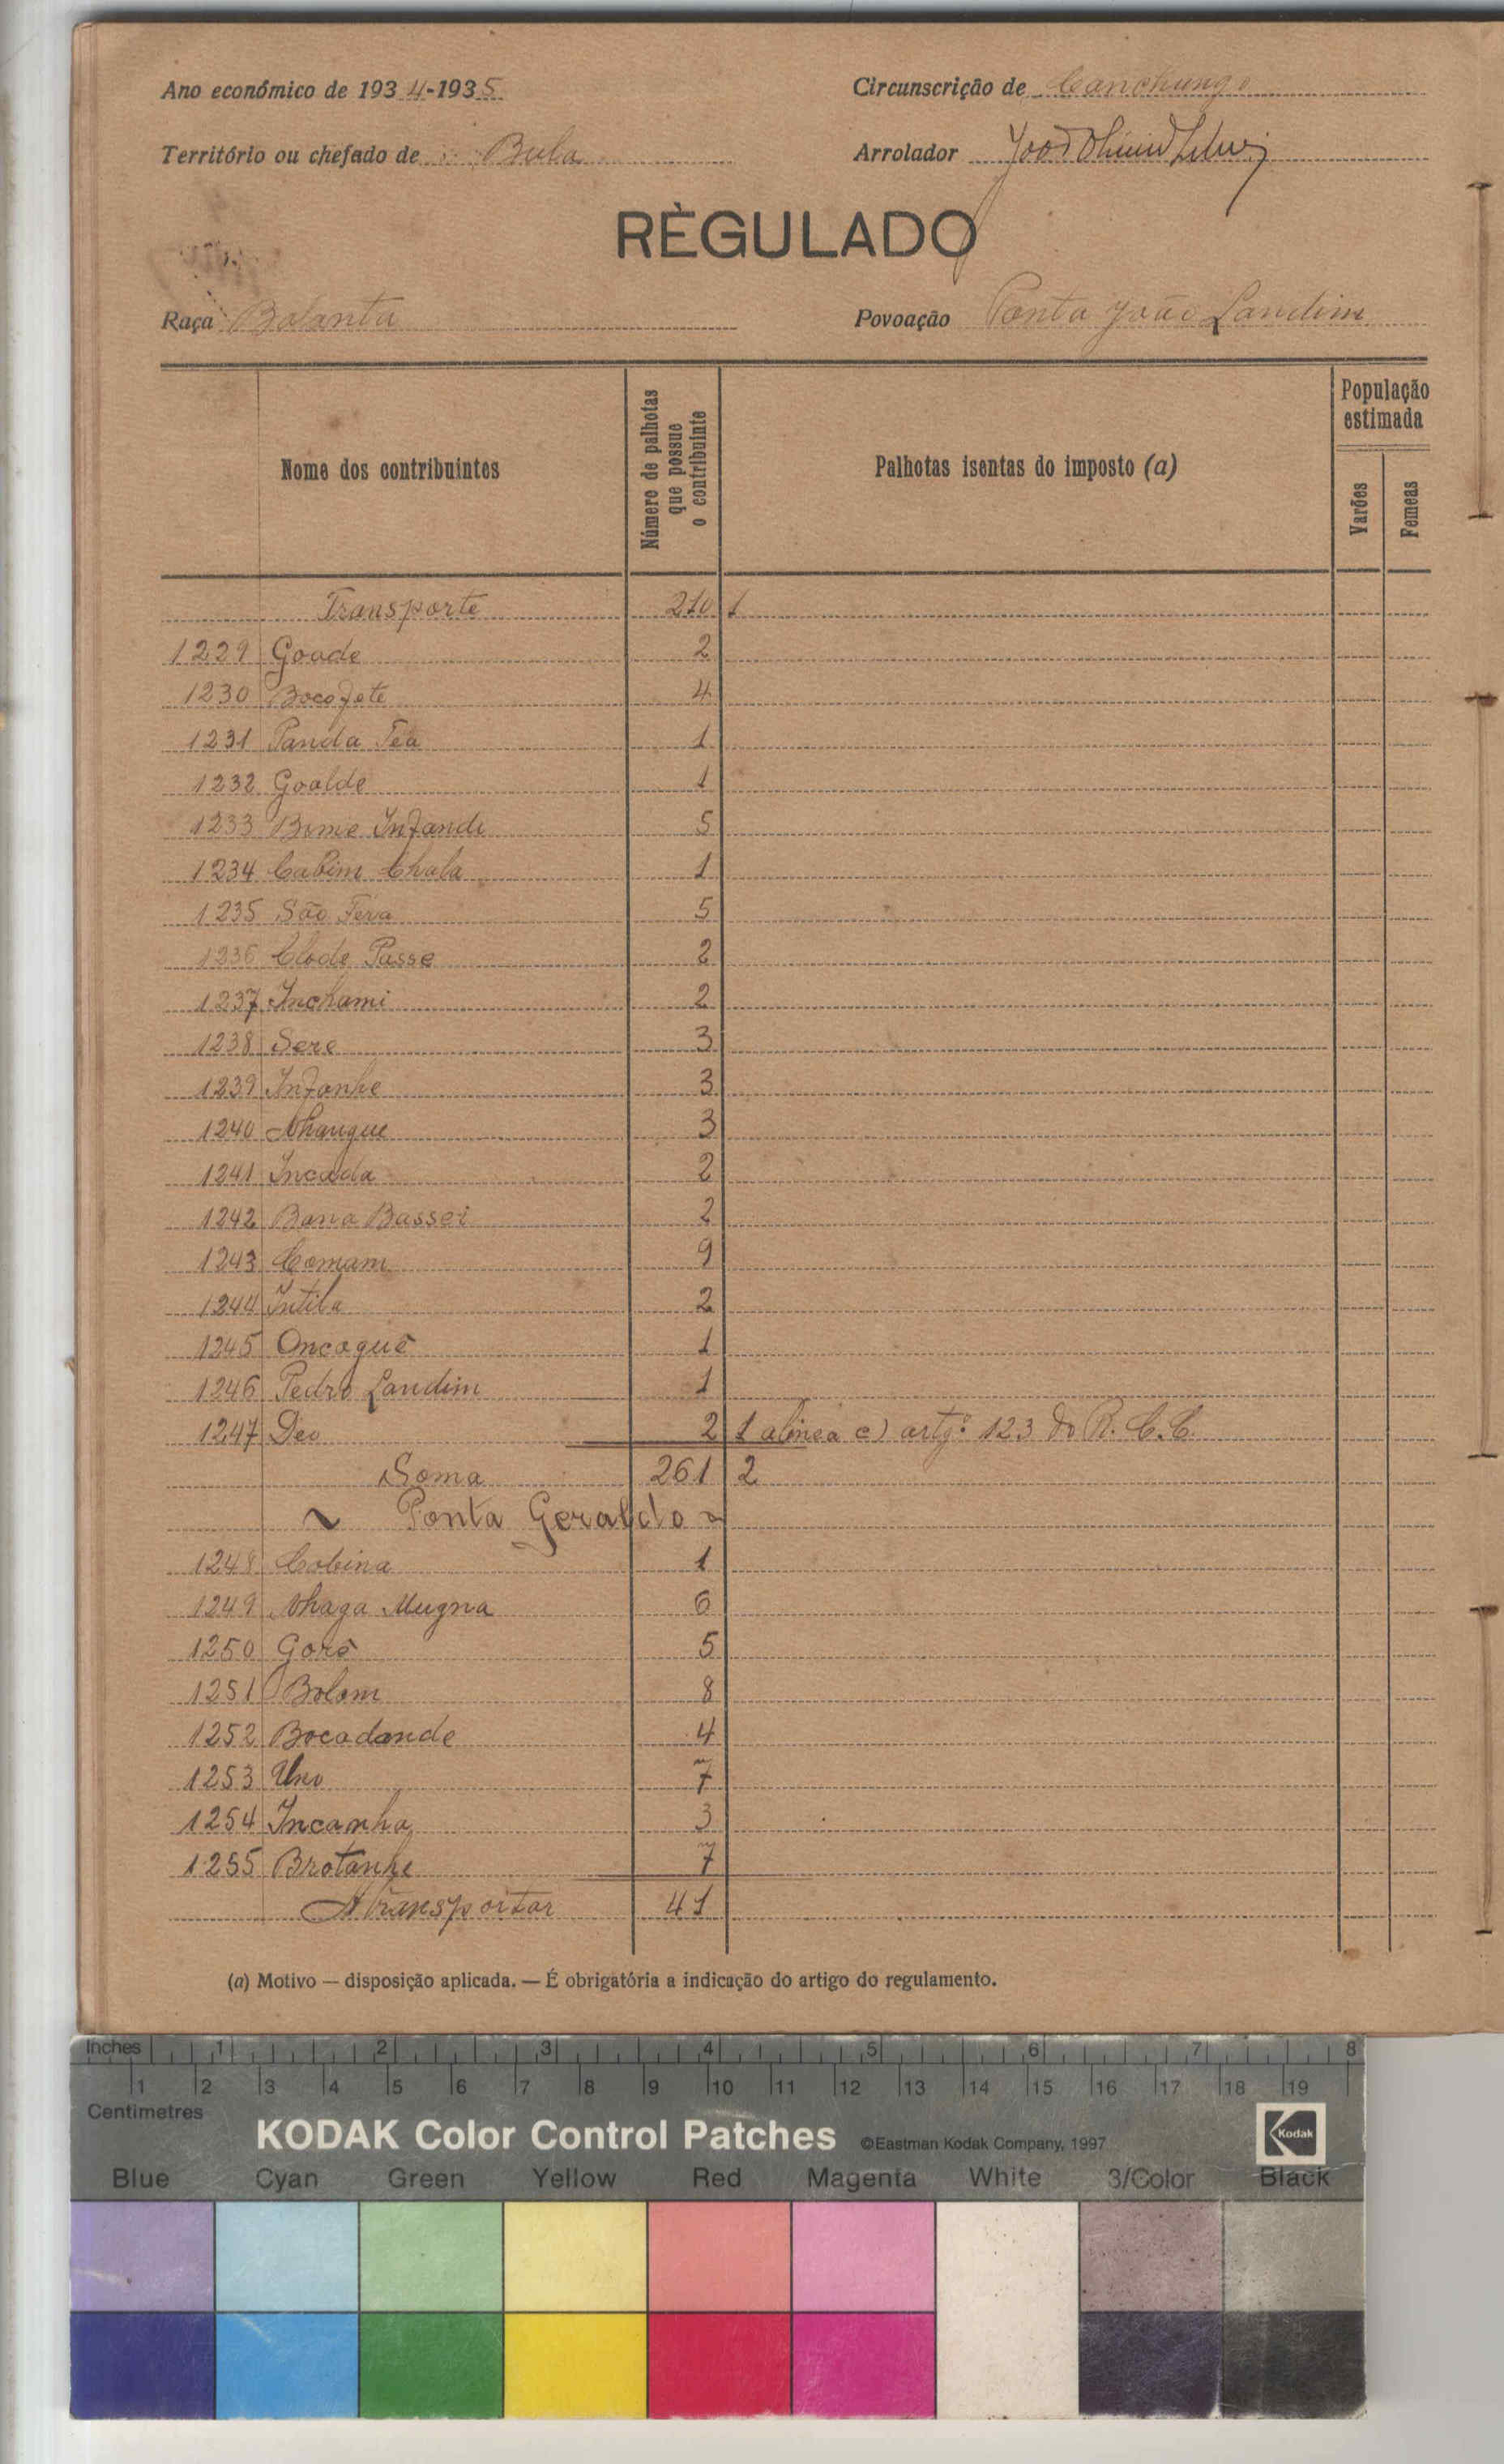 Ano económico de 1934-1935
Circunscrição de Canchungo
Território ou chefado de Bula
Arrolador João
RÈGULADO
Raça Balanta
Povoação Ponta João Landim
Nome dos contribuintes
Número de palhotas que possue o contribuinte
Palhotas isentas do imposto (a)
População estimada
Varões
Femeas
Transporte 210 1
1229 Goade 2
1230 Bocofete 4
1231 Panda Tea 1
1232 Goalde 1
1233 Bime Infande 5
1234 Cabim Chala 1
1235 São Fera 5
1236 Clode Passe 2
1237 Inchami 2
1238 Sere 3
1239 Infanhe 3
1240 Nhangue 3
1241 Incada 2
1242 Bana Bassei 2
1243 Comam 9
1244 Intila 2
1245 Oncoguê 1
1246 Pedro Landim 1
1247 Deo 2 1 alinea c) artgº 123 do R. C. C.
Soma 261 2
~ Ponta Geraldo ~
1248 Cobina 1
1249 Nhaga Mugna 6
1250 Gorê 5
1251 Bolom 8
1252 Bocadande 4
1253 Uno 7
1254 Incanha 3
1255 Brotanhe 7
A transportar 41
(a) Motivo — disposição aplicada. — É obrigatória a indicação do artigo do regulamento.
Inches 1 2 3 4 5 6 7 8
1 2 3 4 5 6 7 8 9 10 11 12 13 14 15 16 17 18 19
Centimetres
KODAK Color Control Patches ©Eastman Kodak Company, 1997 Kodak
Blue Cyan Green Yellow Red Magenta White 3/Color Black